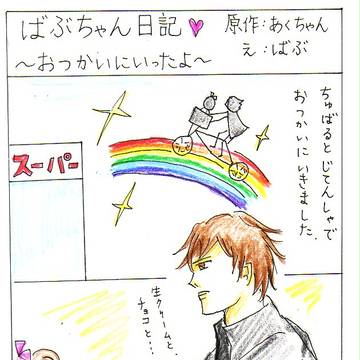 ばぶちゃん日記♥
原作:あくちゃん
え:ばぶ
～おつかいにいったよ～
ちゅばるとじてんしゃで
おつかいにいきました。
スーパー
生クリームと
チョコと・・・